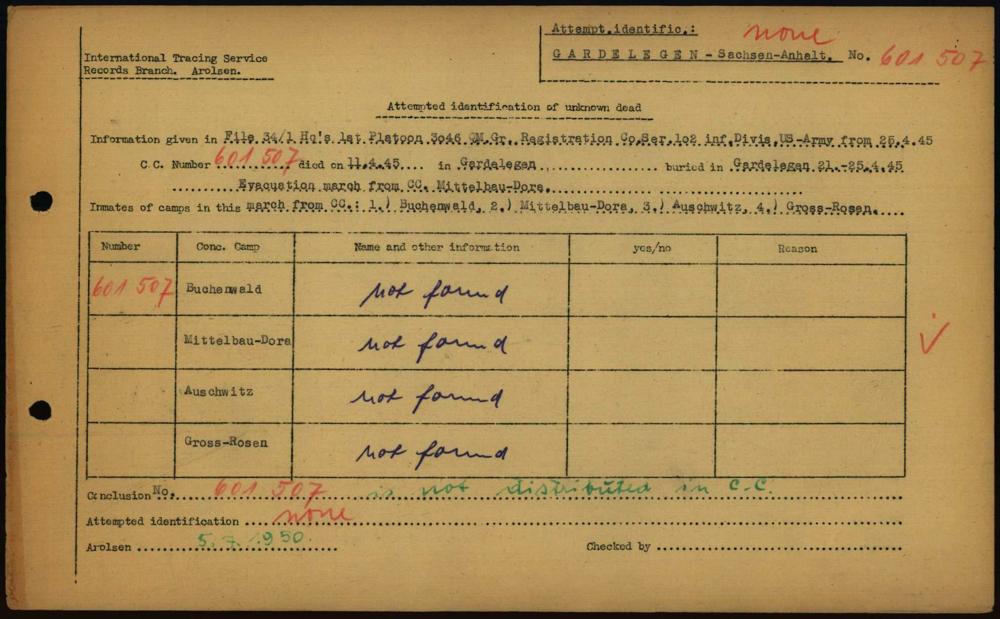 Attempt.identific.: none
International Tracing Service
Records Branch. Arolsen.
GARDELEGEN - Sachsen-Anhalt. No. 601 507
Attempted identification of unknown dead
Information given in File 34/1 Hq's 1st Platoon 3o46 QM.Gr. Registration Co.Ser.1o2 inf.Divis.US-Army from 25.4.45
C.C. Number 601 507 died on 11.4.45 in Gardelegen buried in Gardelegen 21.-25.4.45
Evacuation march from CC. Mittelbau-Dora.
Inmates of camps in this march from CC.: 1.) Buchenwald, 2.) Mittelbau-Dora, 3.) Auschwitz, 4.) Gross-Rosen.
Number Conc. Camp Name and other information yes/no Reason
601 507 Buchenwald not found
Mittelbau-Dora not found
Auschwitz not found
Gross-Rosen not found
Conclusion No. 601 507 is not distributed in C.C.
Attempted identification none
Arolsen 5.7.1950. Checked by